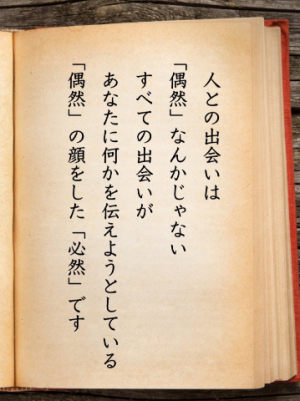 人との出会いは
「偶然」なんかじゃない
すべての出会いが
あなたに何かを伝えようとしている
「偶然」の顔をした「必然」です